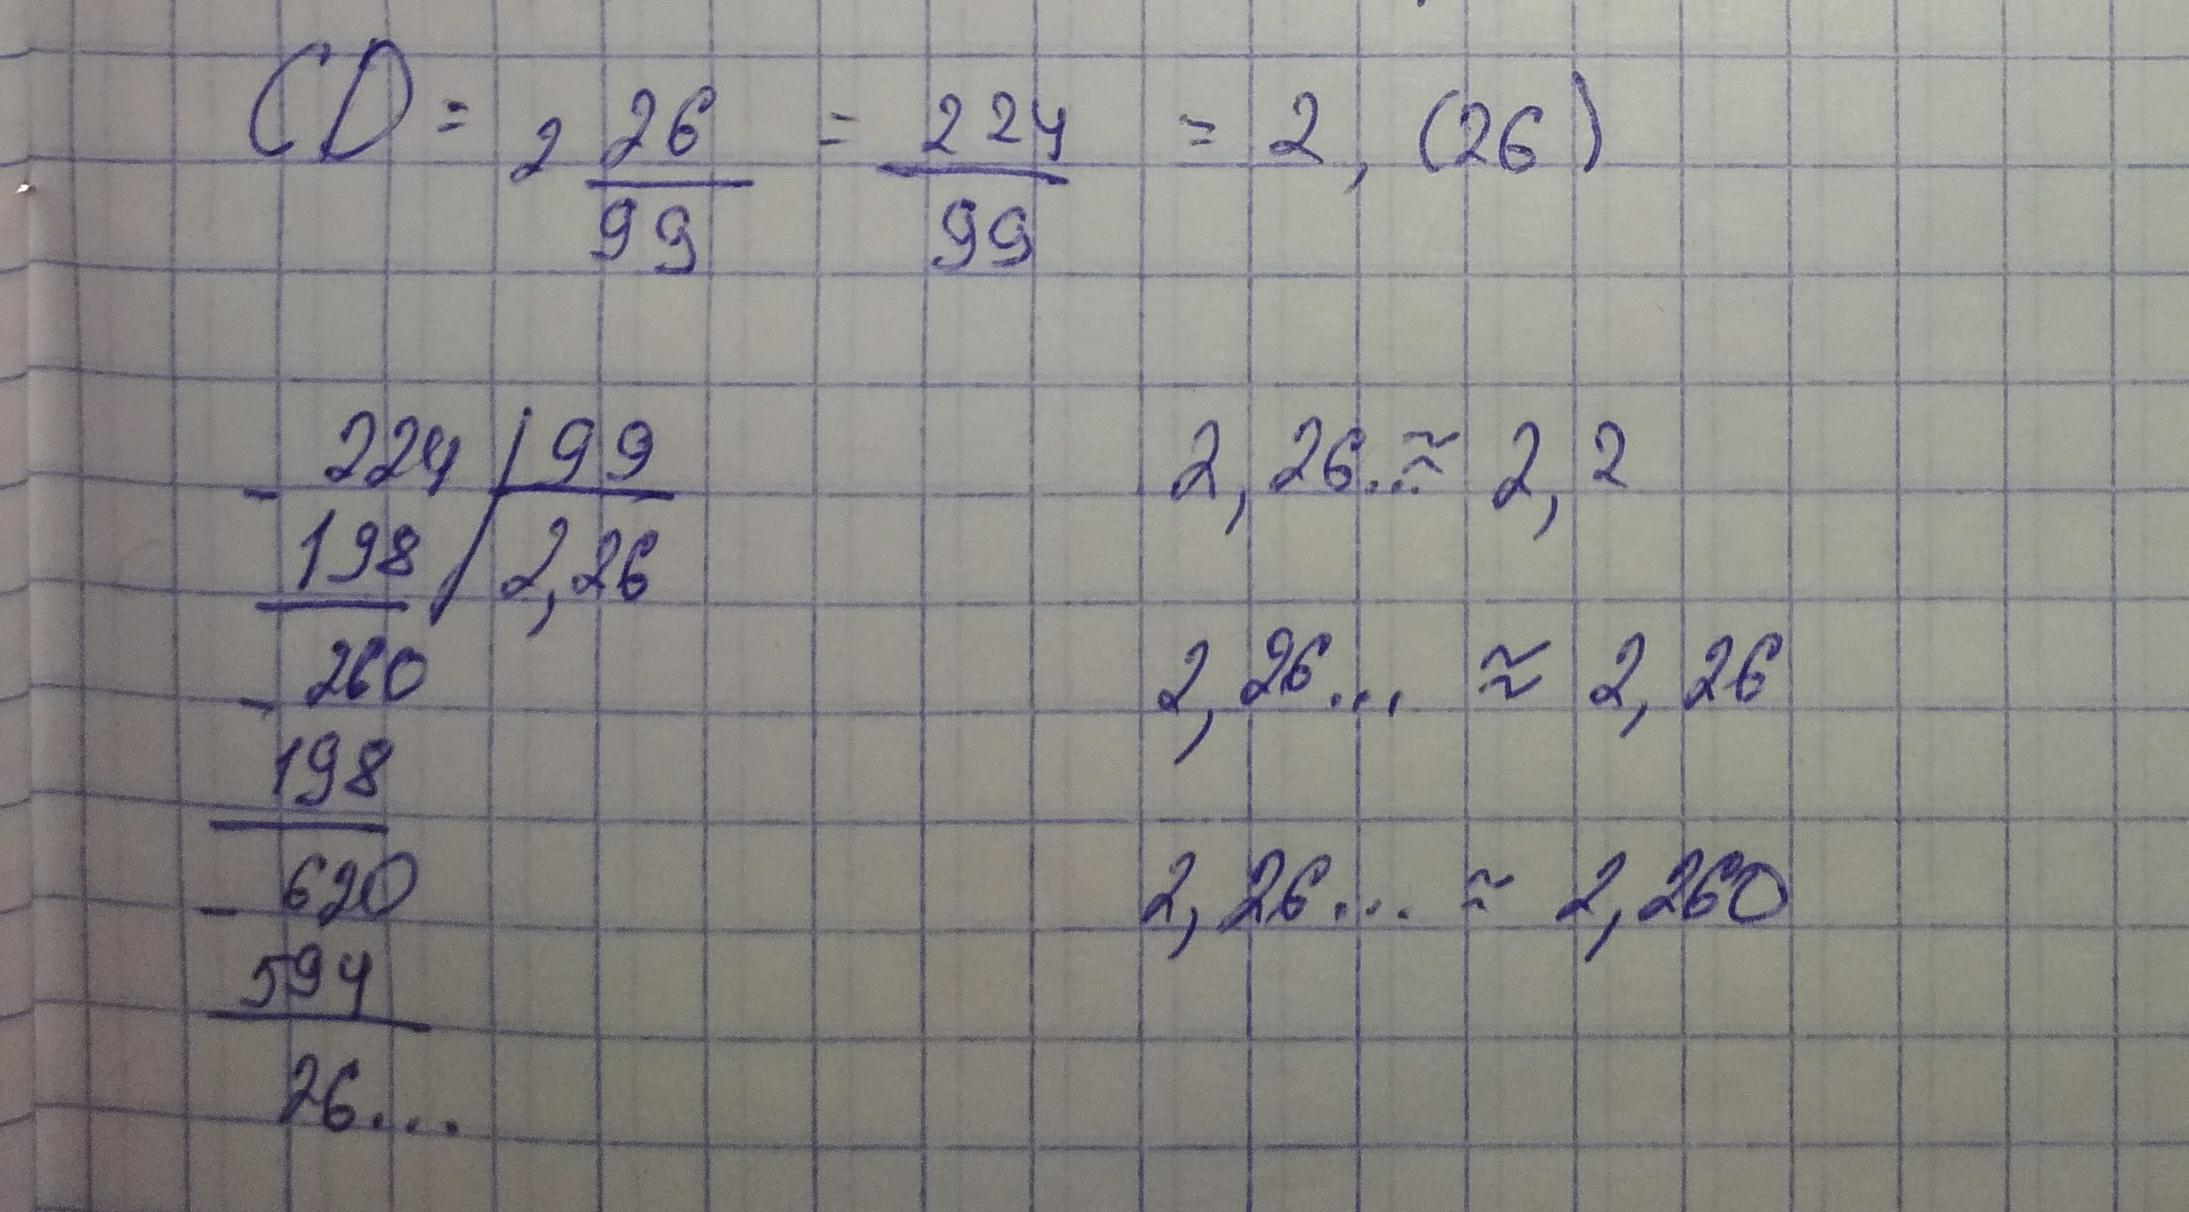 CD = 2 26/99 = 224/99 = 2,(26)
224 | 99
- 198 | 2,26
260
- 198
620
- 594
26...
2,26... ≈ 2,2
2,26... ≈ 2,26
2,26... ≈ 2,260